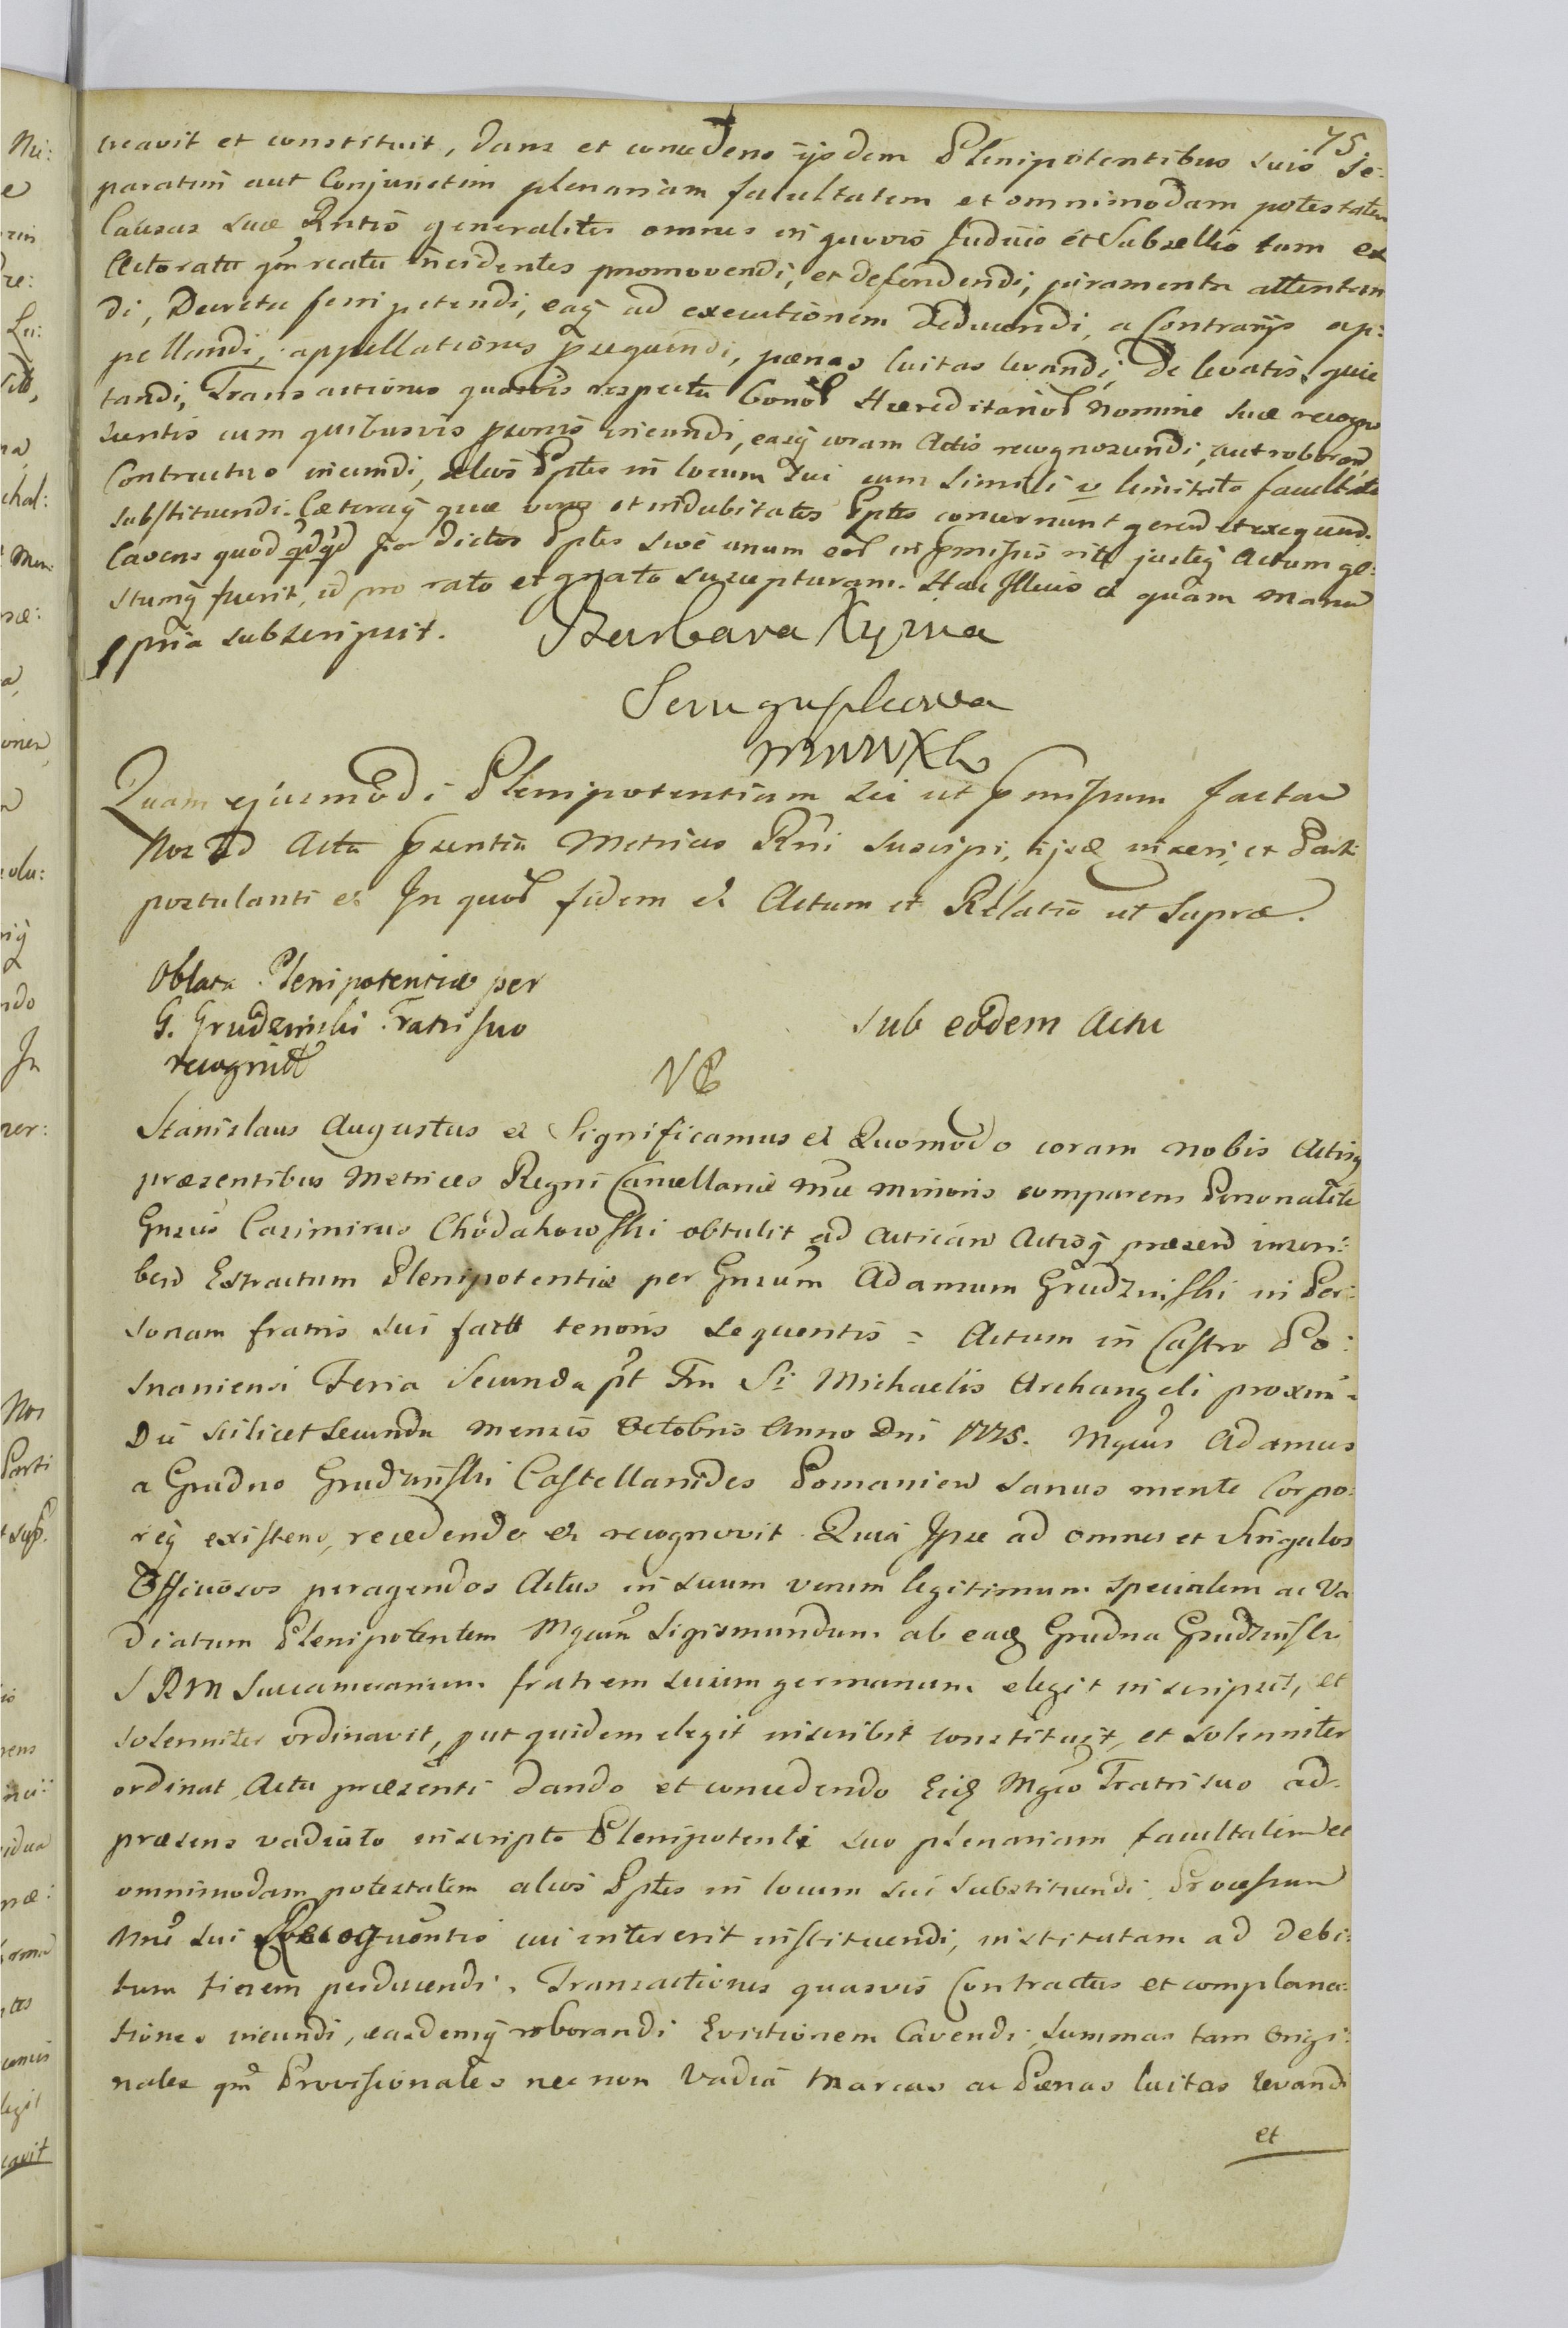 75
creavit et constituit, dans et concedens ijsdem Plenipotentibus suis Se:
paratim aut Conjunctim plenariam facultatem et omnimodam potestatem
Causas suæ Rntis generaliter omnes in quovis Judicio et Subsellio tam ex
Actoratu qm reatu incidentes promovendi, et defendendi, juramenta attentan
di, Decreta ferri petendi, eaq ad executionem deducendi, a Contrarijs ap:
pellandi, appellationes prosequendi, pænas luitas levandi, de levatis quie
tandi, Transactiones quasvis respectu bonor Hæreditarior nomine suæ recogno
scentis cum quibusvis psonis ineundi, easq coram Actis recognoscendi, aut roborand
Contractus ineundi, alios Pptes in locum sui cum simili v limitata facultate
substituendi. Cæteraq quæ veros et indubitatos Pptes concernunt gerend et exequend.
Cavens quod qdqd per dictos Pptes sive unum eor in pmissis rite justeq Actum ge:
stumq fuerit, id pro rato et grato suscepturam. Hac Illius et quam manu
ppria subscripsit. Barbara Xyzna
Sanguszkowa
MWWXLo
Quam ejusmodi Plenipotentiam sic ut pmissum factam
Nos ad Acta psentia Metrices Rni suscipi, ijsq inseri, et Parti
postulanti et In quor fidem et Actum et Relatio ut Supra.
Oblata Plenipotentiæ per
G. Grudzinski Fratri suo
recognitt
sub eodem Actu
Stanislaus Augustus et Significamus et Quomodo coram nobis Actisq
præsentibus Metrices Regni Cancellariæ nræ minoris comparens Personaliter
Gnsus Casimirus Chodakowski obtulit ad acticand Actisq præsend inscri:
bend Extractum Plenipotentiæ per Gnsum Adamum Grudzinski in Per:
sonam fratris sui factt tenoris sequentis = Actum in Castro Po:
snaniensi Feria Secunda pt Fm Si Michaelis Archangeli proxim:
Die scilicet secunda mensis Octobris Anno Dni 1775. Mgcus Adamus
a Grudno Grudzinski Castellanides Posnanien sanus mente Corpo:
req existens, recedendo et recognovit Quia Ipse ad omnes et singulos
Officiosos peragendos Actus in suum verum legitimum specialem ac Va
diatum Plenipotentem Mgcum Sigismundum ab eadq Grudna Grudzinski
SRM Succamerarium fratrem suum germanum elegit inscripsit, et
solenniter ordinavit, put quidem elegit inscribit constituit, et solenniter
ordinat Actu præsenti dando et concedendo Eidq Mgco Fratri suo ad
præsens vadiato inscripto Plenipotenti suo plenariam facultatem et
omnimodam potestatem alios Pptes in locum sui substituendi Processum
nne sui Recognontis cui intererit instituendi, institutam ad debi:
tum finem perducendi. Transactiones quasvis Contractus et complana:
tiones ineundi, easdemq roborandi Evictionem Cavendi, summas tam Origi:
nales qm Provisionales nec non Vadia Marcas ac Pænas luitas levandi
et